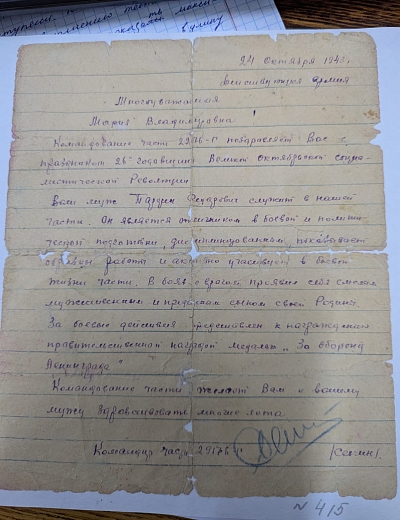 24 октября 1943.
Действующая армия
Многоуважаемая
Мария Владимировна!
Командование части 29176-Г поздравляет Вас с
праздником 26 годовщины Великой октябрьской социа-
листической Революции
Ваш муж Федорович служит в нашей
части. Он является отличником в боевой и полити-
ческой подготовке, дисциплинированный, показывает
образцы работы и активно участвует в боевой
жизни части. В боях с врагом проявил себя смелым
мужественным и преданным сыном своей Родины
За боевые действия представлен к награждению
правительственной наградой медалью "За оборону
Ленинграда"
Командование части желает Вам и вашему
мужу здравствовать многие лета
Командир части 29176 Г
N 415